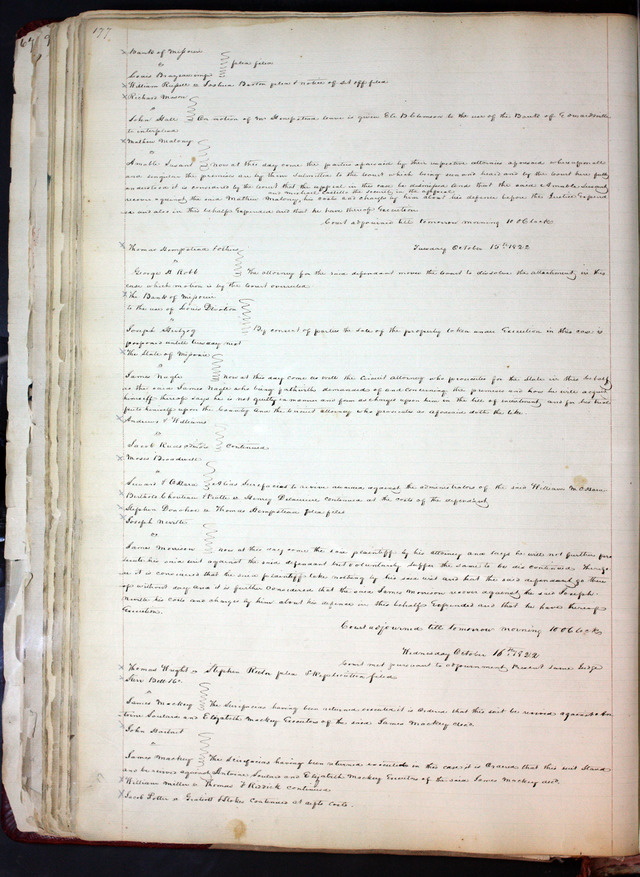 177
Bank of Missouri
vs
Louis Brazeau
pleas filed
William Russell vs Joshua Barton pleas & notice of set off filed
Richard Mason
vs
John Hall On motion of Mr Hempstead leave is given Eli B Clemson to the use of the Bank of Edwardsville
to interplead
Mathew Malony
vs
Amable now at this day come the parties aforesaid by their respective attornies aforesaid whereupon all
and singular the premises are by them submitted to the Court which being seen and heard and by the Court here fully
understood it is considered by the Court that the appeal in this case be dismissed And that the said Amable
the security in the appeal
recover against the said Mathew Malony, his costs and charges by him about his defence before the Justice Expend
ed and also in this behalf Expended and that he have thereof Execution
Court adjourned till tomorrow morning 10 OClock
Tuesday October 15th 1822
Thomas Hempstead & others
vs
George H Robb The attorney for the said defendant moves the Court to dissolve the attachment in this
case which motion is by the Court overruled
The Bank of Missouri
to the use of Louis
vs
Joseph Hertzog By consent of parties the sale of the property taken under Execution in this case is
postponed untill tuesday next
The State of Missouri
vs
James Nagle now at this day come as well the Circuit Attorney who prosecutes for the State in this behalf
as the said James Nagle who being forthwith demanded of and concerning the premises and how he will acquit
himself thereof says he is not guilty in manner and form as charged upon him in the bill of indictment, and for his trial
puts himself upon the Country and the Circuit attorney who prosecutes as aforesaid doth the like
Andrews & Williams
vs
Jacob continued
Moses Broadwell
vs
& OHara Alias Scirefacias to revive awarded against the administrators of the said William M OHara
Berthold Chouteau & Pratte vs Henry continued at the costs of the defendant
Stephen Donohoe vs Thomas Hempstead plea filed
Joseph
vs
James Morrison now at this day come the said plaintiff by his attorney and says he will not further pro
secute his said suit against the said defendant but voluntarily suffers the same to be discontinued. Therefo
re it is considered that the said plaintiff take nothing by his said writ and that the said defendant go there
of without day and it is further considered that the said James Morrison recover against the said Joseph
his costs and charges by him about his defence in this behalf Expended and that he have thereof
Execution.
Court adjourned till tomorrow morning 10 OClock
Wednesday October 16th 1822
Court met pursuant to adjournment, Present same Judge
Thomas Wright vs Stephen pleas & Replication filed
vs
James Mackey The Scirefacias having been returned executed it is ordered that this suit be revived against An
toine Soulard and Elizabeth Mackey Executors of the said James Mackey decd.
John
vs
James Mackey The Scirefacias having been returned executed in this case it is Ordered that this suit Stand
and be revived against Antoine Soulard and Elizabeth Mackey Executors of the said James Mackey decd.
William Miller vs Thomas F Riddick continued
Jacob vs & Stokes continued at defts costs.